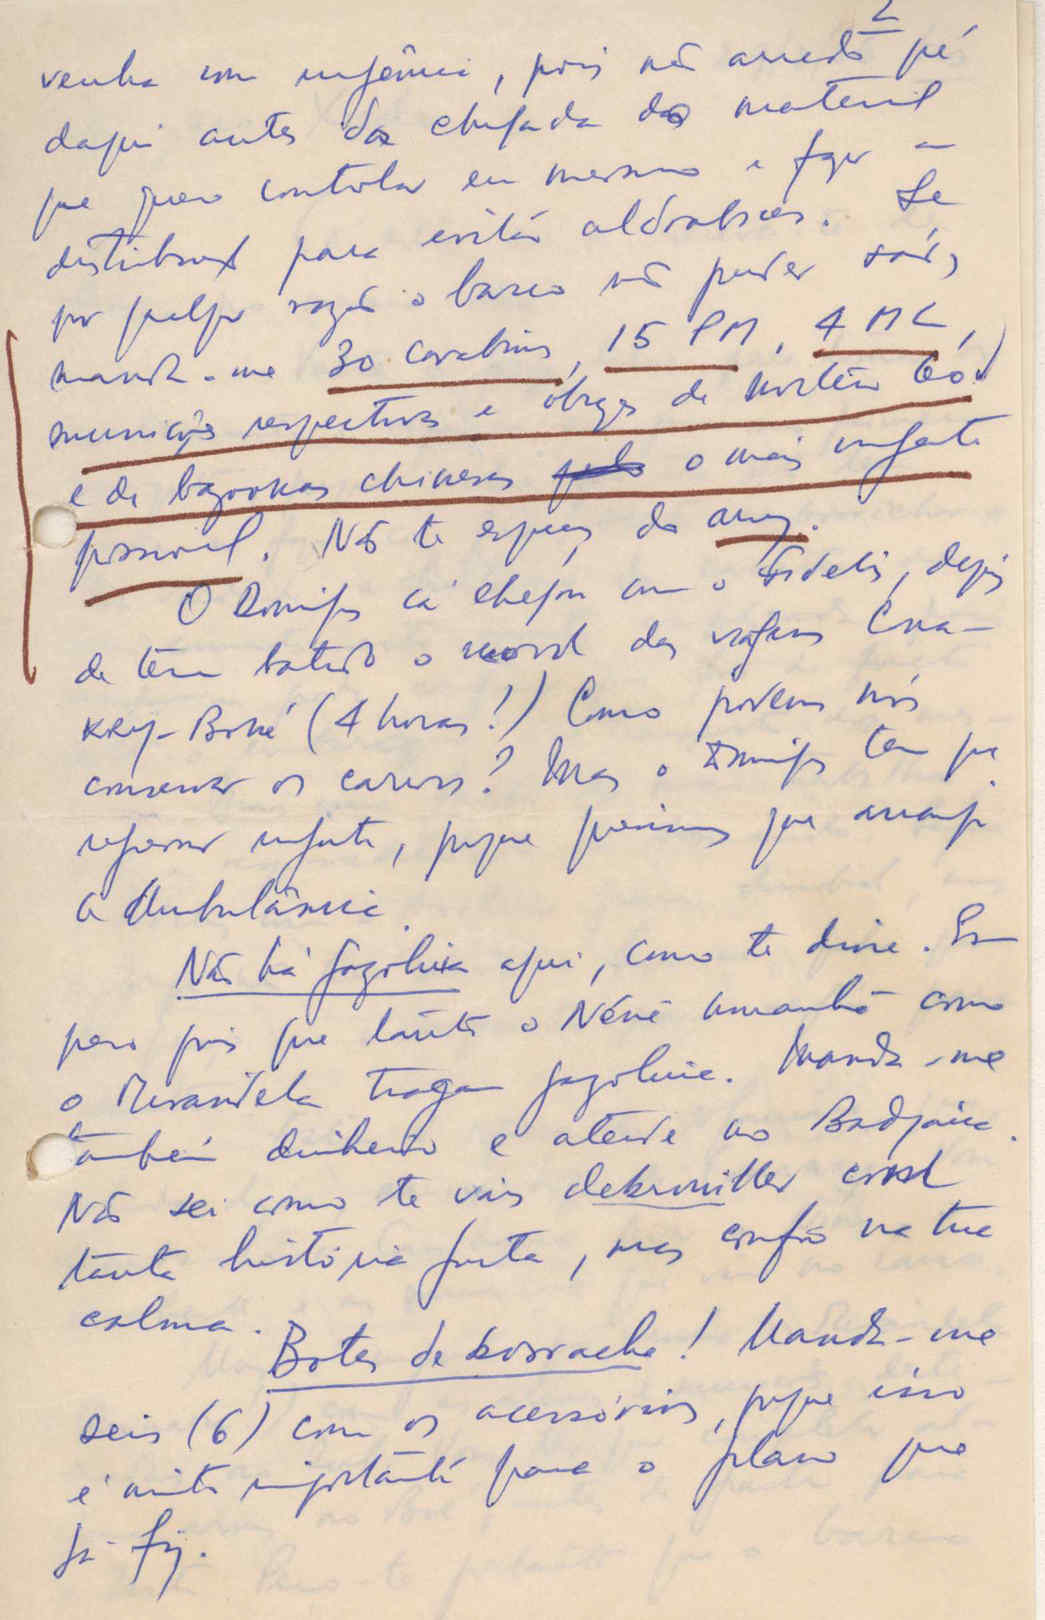 2
venha com urgência, pois não arredo pé
daqui antes da chegada do material
que quero controlar eu mesmo e fazer a
distribuição para evitar aldrabices. Se
por qualquer razão o barco não puder sair,
manda-me 30 carabinas, 15 PM, 4 ML,
munições respectivas e obuzes de mortéro 60
e de bazookas chinesas o mais urgente
possível. Não te esqueças do
O Domingos cá chegou com o Fidelis, depois
de têm batido o record das viagens Cona-
kry-Boké (4 horas!) Como podemos nós
conservar os carros? Mas o Domingos tem que
regressar urgente, porque precisamos que arranje
a Ambulância.
Não há gazolina aqui, como te disse. Es-
pero pois que tanto o Néné amanhã como
o Mirandela tragam gazolina. Manda-me
também dinheiro e atende ao Badjaica.
Não sei como te vais débrouiller com
tanta história junta, mas confio na tua
calma.
Botes de borracha! Manda-me
seis (6) com os acessórios, porque isso
é muito importante para o plano que
já fiz.